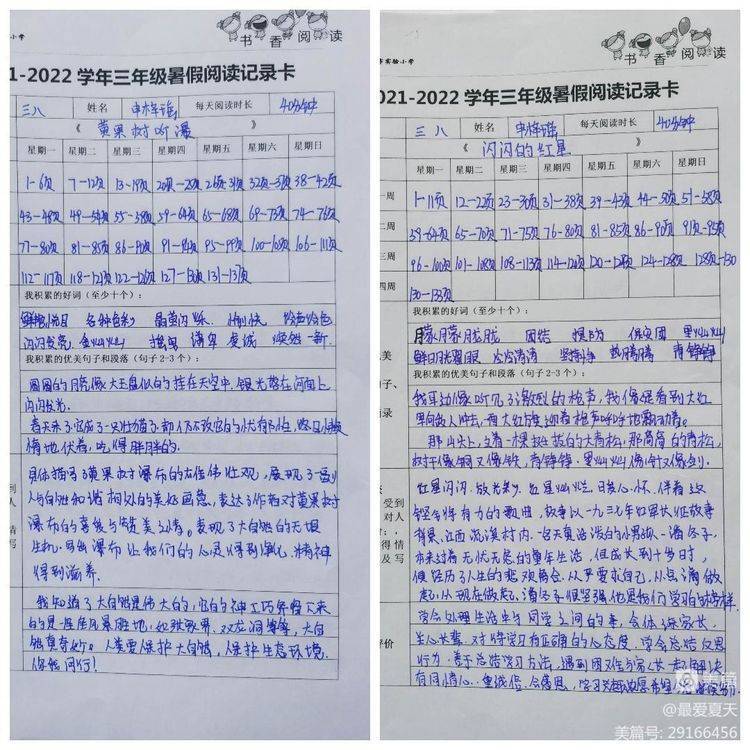 小学
书香阅读
1-2022 学年三年级暑假阅读记录卡
三八 姓名 每天阅读时长 40分钟
《 黄果树听瀑 》
星期一 星期二 星期三 星期四 星期五 星期六 星期日
1-6页 7-12页 13-19页 20页-25页 26页-31页 32页-37页 38-42页
43-48页 49-54页 55-58页 59-64页 65-68页 69-73页 74-76页
77-80页 81-85页 86-90页 91-94页 95-99页 100-105页 106-111页
112-117页 118-121页 122-126页 127-130页 131-137页
我积累的好词(至少十个):
鲜艳悦目 各种色彩 晶莹闪烁 愉快
闪闪发亮 金灿灿 焕然一新
我积累的优美句子和段落(句子2-3个):
圆圆的月亮像大玉盘似的挂在天空中,银光洒在河面上
闪闪发光。
情地伏着,吃得胖胖的。
具体描写黄果树瀑布的雄伟壮观,展现了
人与自然和谐相处的美好画卷,表达了作者对黄果树
瀑布的喜爱与赞美之情。表现了大自然的无限
生机,写出瀑布让我们的心灵得到净化,精神
得到滋养。
我知道了大自然是伟大的,它的神工巧养留下来
的是一座座风景胜地,如张家界、双龙洞等等,大自
然真奇妙。人类要保护大自然,保护生态环境,
你能同行!
到
人
情
写
市实验小学
书香阅读
021-2022 学年三年级暑假阅读记录卡
三八 姓名 每天阅读时长 40分钟
《 闪闪的红星 》
星期一 星期二 星期三 星期四 星期五 星期六 星期日
一周 1-11页 12-22页 23-30页 31-38页 39-43页 44-50页 51-58页
二周 59-64页 65-70页 71-75页 76-80页 81-85页 86-90页 91页-95页
三周 96-100页 101-108页 108-113页 114-120页 120-124页 124-128页 128页-130
四周 130-135页
我积累的好词(至少十个):
朦朦胧胧 团结 提防 保安团 黑灿灿
鲜明耀眼 冷冷清清 坚持 热腾腾 青铮铮
我积累的优美句子和段落(句子2-3个):
我耳边像听见了激烈的枪声,我像是看到大红
那山尖上,立着一棵挺拔的大青松,那高高的青松,
树干像钢又像铁,青铮铮,黑灿灿,像针又像剑。
红星闪闪,放光彩,红星灿灿,日暖心怀,伴着这
铿锵有力的歌曲,故事以一九三四年红军长征故事
背景,江西流溪村内,一名天真活泼的小男孩—潘冬子,
本来过着无忧无虑的童年生活,但成长到十岁时,
便经历了人生的悲欢离合,从严要求自己,从点滴做
起,从现在做起,潘冬子很坚强,他是我们学习的好榜样。
学会处理生活中与同学之间的事,会体谅家长,
关心长辈,对待学习有正确的心态度,学会总结反思
行为,善于总结学习方法,遇到困难与家长一起解决
有同情心,重诚信,会感恩,
受到
对人
得情
及写
评价
美篇
@最爱夏天
美篇号: 29166456